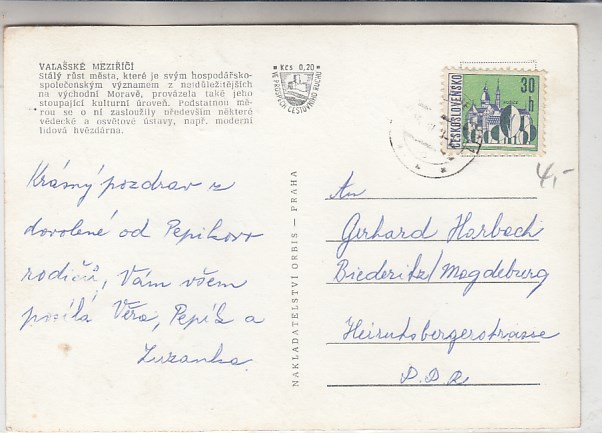 VALAŠSKÉ MEZIŘÍČÍ
Stálý růst města, které je svým hospodářsko-
společenským významem z nejdůležitějších
na východní Moravě, provázela také jeho
stoupající kulturní úroveň. Podstatnou mě-
rou se o ni zasloužily především některé
vědecké a osvětové ústavy, např. moderní
lidová hvězdárna.
Kčs 0,20
VE PROSPĚCH CESTOVNÍHO RUCHU
ČESKOSLOVENSKO
30
h
4,-
Krásný pozdrav z
dovolené od Pepikovo
rodičů, Vám všem
posílá Věra, Pepík a
Zuzanka.
NAKLADATELSTVÍ ORBIS — PRAHA
An
Gerhard Horbach
Biederitz/Magdeburg
Heirutsbergerstrasse
D.D.R